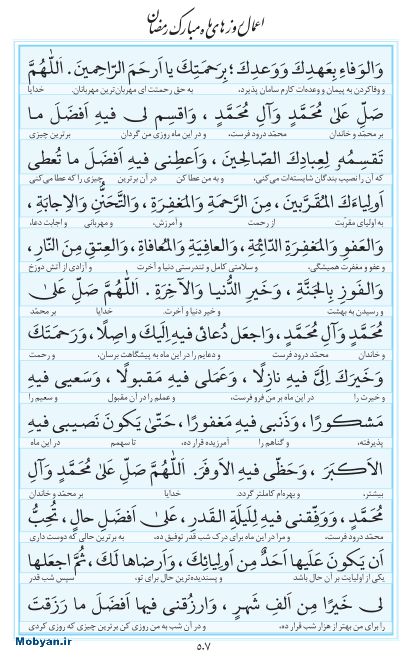 اعمال روزهای ماه مبارک رمضان
وَالوَفاءِ بِعَهدِكَ وَوَعدِكَ؛ بِرَحمَتِكَ يا اَرحَمَ الرّاحِمينَ. اَللّٰهُمَّ
و وفاکردن به پیمان و وعده‌ات کارم سامان پذیرد، به حق رحمتت ای مهربان‌ترین مهربانان. خدایا
صَلِّ عَلىٰ مُحَمَّدٍ وَآلِ مُحَمَّدٍ، وَاقسِم لى فيهِ اَفضَلَ ما
بر محمّد و خاندان محمّد درود فرست، و در این ماه روزی من گردان برترین چیزی
تَقسِمُهُ لِعِبادِكَ الصّالِحينَ، وَاَعطِنى فيهِ اَفضَلَ ما تُعطى
که آن را نصیب بندگان شایسته‌ات می‌کنی، و به من عطا کن در آن برترین چیزی را که عطا می‌کنی
اَولِياءَكَ المُقَرَّبينَ، مِنَ الرَّحمَةِ وَالمَغفِرَةِ، وَالتَّحَنُّنِ وَالاِجابَةِ،
به اولیای مقرّبت از رحمت و آمرزش، و مهربانی و اجابت دعا،
وَالعَفوِ وَالمَغفِرَةِ الدّائِمَةِ، وَالعافِيَةِ وَالمُعافاةِ، وَالعِتقِ مِنَ النّارِ،
و عفو و مغفرت همیشگی، و سلامتی کامل و تندرستی دنیا و آخرت و آزادی از آتش دوزخ
وَالفَوزِ بِالجَنَّةِ، وَخَيرِ الدُّنيا وَالآخِرَةِ. اَللّٰهُمَّ صَلِّ عَلىٰ
و رسیدن به بهشت و خیر دنیا و آخرت. خدایا بر محمّد
مُحَمَّدٍ وَآلِ مُحَمَّدٍ، وَاجعَل دُعائى فيهِ اِلَيكَ واصِلًا، وَرَحمَتَكَ
و خاندان محمّد درود فرست و دعایم را در این ماه به پیشگاهت برسان، و رحمت
وَخَيرَكَ اِلَىَّ فيهِ نازِلًا، وَعَمَلى فيهِ مَقبولًا، وَسَعيى فيهِ
و خیرت را در این ماه بر من فرو فرست، و عملم را در آن مقبول و سعیم را
مَشكورًا، وَذَنبى فيهِ مَغفورًا، حَتّىٰ يَكونَ نَصيبى فيهِ
پذیرفته، و گناهم را آمرزیده قرار ده، تا سهمم در این ماه
الاَكبَرَ، وَحَظّى فيهِ الاَوفَرَ. اَللّٰهُمَّ صَلِّ عَلىٰ مُحَمَّدٍ وَآلِ
بیشتر، و بهره‌ام کاملتر گردد. خدایا بر محمّد و خاندان
مُحَمَّدٍ، وَوَفِّقنى فيهِ لِلَيلَةِ القَدرِ، عَلىٰ اَفضَلِ حالٍ، تُحِبُّ
محمّد درود فرست، و مرا در این ماه برای درک شب قدر توفیق ده، به برترین حالی که دوست داری
اَن يَكونَ عَلَيها اَحَدٌ مِن اَولِيائِكَ، وَاَرضاها لَكَ، ثُمَّ اجعَلها
یکی از اولیایت بر آن حال باشد و پسندیده‌ترین حال برای تو، سپس شب قدر
لى خَيرًا مِن اَلفِ شَهرٍ، وَارزُقنى فيها اَفضَلَ ما رَزَقتَ
را برای من بهتر از هزار شب قرار ده، و در آن شب به من روزی کن برترین چیزی که روزی کردی
۵۰۷
Mobyan.ir